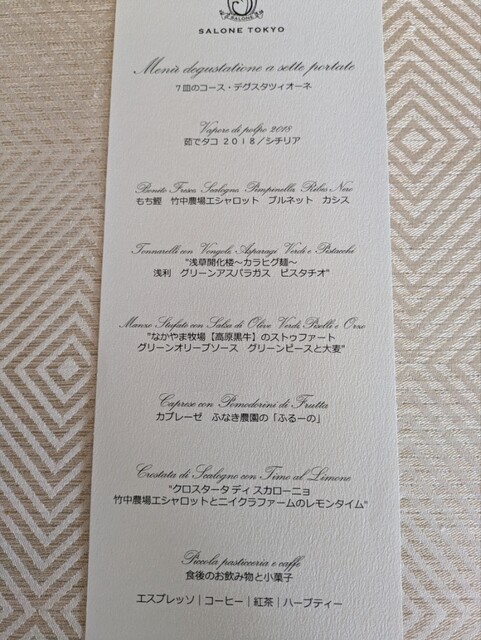 SALONE
SALONE TOKYO
Menù degustatione a sette portate
7皿のコース・デグスタツィオーネ
Vapore di polpo 2018
茹でタコ 2018／シチリア
Bonito Fresco Scalogna Pimpinella Ribes Nero
もち鰹 竹中農場エシャロット プルネット カシス
Tonnarelli con Vongole Asparagi Verdi e Pistacchi
"浅草開化楼～カラヒグ麺～
浅利 グリーンアスパラガス ピスタチオ"
Manzo Stufato con Salsa di Olive Verdi Piselli e Orzo
"なかやま牧場【高原黒牛】のストゥファート
グリーンオリーブソース グリーンピースと大麦"
Caprese con Pomodorini di Frutta
カプレーゼ ふなき農園の「ふるーの」
Crostata di Scalogno con Timo al Limone
"クロスタータ ディ スカローニョ
竹中農場エシャロットとニイクラファームのレモンタイム"
Piccola pasticceria e caffè
食後のお飲み物と小菓子
エスプレッソ｜コーヒー｜紅茶｜ハーブティー